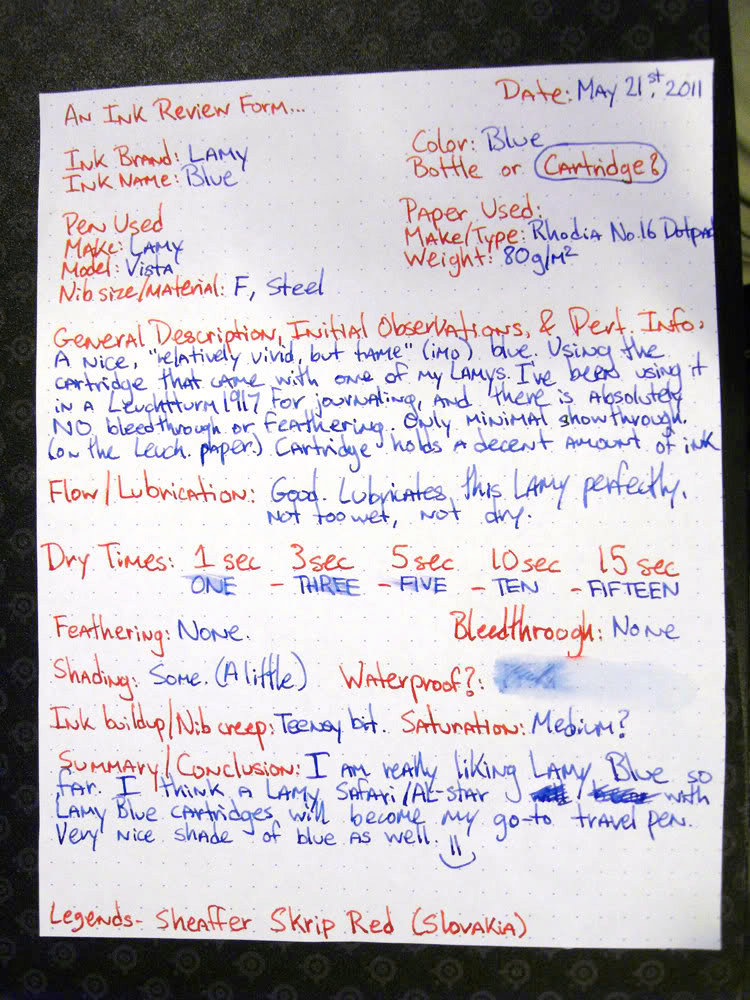 An Ink Review Form... Date: May 21st, 2011
Ink Brand: LAMY Color: Blue
Ink Name: Blue Bottle or Cartridge?
Pen Used Paper Used:
Make: LAMY Make/Type: Rhodia No.16 Dotpad
Model: Vista Weight: 80g/m²
Nib size/material: F, Steel
General Description, Initial Observations, & Pert. Info:
A nice, "relatively vivid, but tame" (imo) blue. Using the
cartridge that came with one of my LAMYs. I've been using it
in a Leuchtturm1917 for journaling, and there is absolutely
NO bleedthrough or feathering. Only minimal showthrough.
(on the Leuch. paper.) Cartridge holds a decent amount of ink
Flow/Lubrication: Good. Lubricates this LAMY perfectly.
Not too wet, not dry.
Dry Times: 1 sec 3 sec 5 sec 10 sec 15 sec
ONE - THREE - FIVE - TEN - FIFTEEN
Feathering: None. Bleedthrough: None
Shading: Some. (A little) Waterproof?:
Ink buildup/Nib creep: Teensy bit. Saturation: Medium?
Summary/Conclusion: I am really liking LAMY Blue so
far. I think a LAMY Safari/AL-Star with
LAMY Blue cartridges will become my go-to travel pen.
Very nice shade of blue as well.
Legends- Sheaffer Skrip Red (Slovakia)